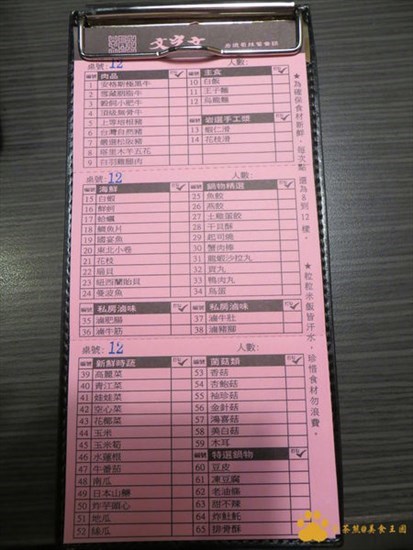 桌號: 12
人數:
編號 肉品
1 安格斯極黑牛
2 雪凝翼板牛
3 穀飼小肥牛
4 頂級無骨牛
5 上等培根豬
6 台灣自然豬
7 嚴選松阪豬
8 塔里木羊五花
9 白羽雞腿肉
編號 主食
10 白飯
11 王子麵
12 烏龍麵
編號 岩選手工漿
13 蝦仁滑
14 花枝滑
桌號: 12
人數:
編號 海鮮
15 白蝦
16 鮮蚵
17 蛤蠣
18 鯛魚片
19 國宴魚
20 東北小卷
21 花枝
22 扇貝
23 紐西蘭貽貝
24 曼波魚
編號 鍋物精選
25 魚餃
26 燕餃
27 土雞蛋餃
28 干貝酥
29 起司碗
30 蟹肉棒
31 龍蝦沙拉丸
32 貢丸
33 鴨肉丸
34 鳥蛋
編號 私房滷味
35 滷肥腸
36 滷牛筋
編號 私房滷味
37 滷牛肚
38 滷豬腳
桌號: 12
人數:
編號 新鮮時蔬
39 高麗菜
40 青江菜
41 娃娃菜
42 空心菜
43 花椰菜
44 玉米
45 玉米筍
46 水蓮根
47 牛番茄
48 南瓜
49 日本山藥
50 炸芋頭心
51 地瓜
52 絲瓜
編號 菌菇類
53 香菇
54 杏鮑菇
55 袖珍菇
56 金針菇
57 鴻喜菇
58 美白菇
59 木耳
編號 特選鍋物
60 豆皮
61 凍豆腐
62 老油條
63 甜不辣
64 炸魠魠
65 排骨酥
★為確保食材新鮮，每次點選為8到12樣。
★粒粒米飯皆汗水，珍惜食材勿浪費。
茶熊@美食王國